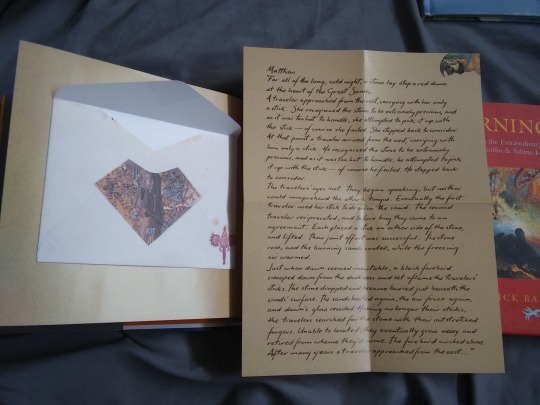 Matthew
For all of the long, cold night, a stone lay atop a red dune
at the heart of the Great Sands.
A traveler approached from the east, carrying with her only
a stick. She recognized the stone to be extremely precious, and
as it was too hot to handle, she attempted to pick it up with
the stick — of course she failed. She stepped back to consider.
At that point a traveler arrived from the west, carrying with
him only a stick. He recognized the stone to be extremely
precious, and as it was too hot to handle, he attempted to pick
it up with the stick — of course he failed. He stepped back
to consider.
The travelers' eyes met. They began speaking, but neither
could comprehend the other's tongue. Eventually the first
traveler used her stick to draw in the sand. The second
traveler reciprocated, and before long they came to an
agreement. Each placed a stick on either side of the stone,
and lifted. Their joint effort was successful. The stone
rose, and the burning sands cooled, while the freezing
air warmed.
Just when dawn seemed inevitable, a black firebird
swooped down from the darkness and set aflame the travelers'
sticks. The stone dropped and became buried just beneath the
sands' surface. The sands heated again, the air froze again,
and dawn's glow receded. Having no longer their sticks,
the travelers searched for the stone with their outstretched
fingers. Unable to locate it, they eventually grew weary and
retired from whence they'd come. The firebird circled above.
After many years a traveler approached from the east...."
RNING
the Extraordinary
& Sabine
CK BA